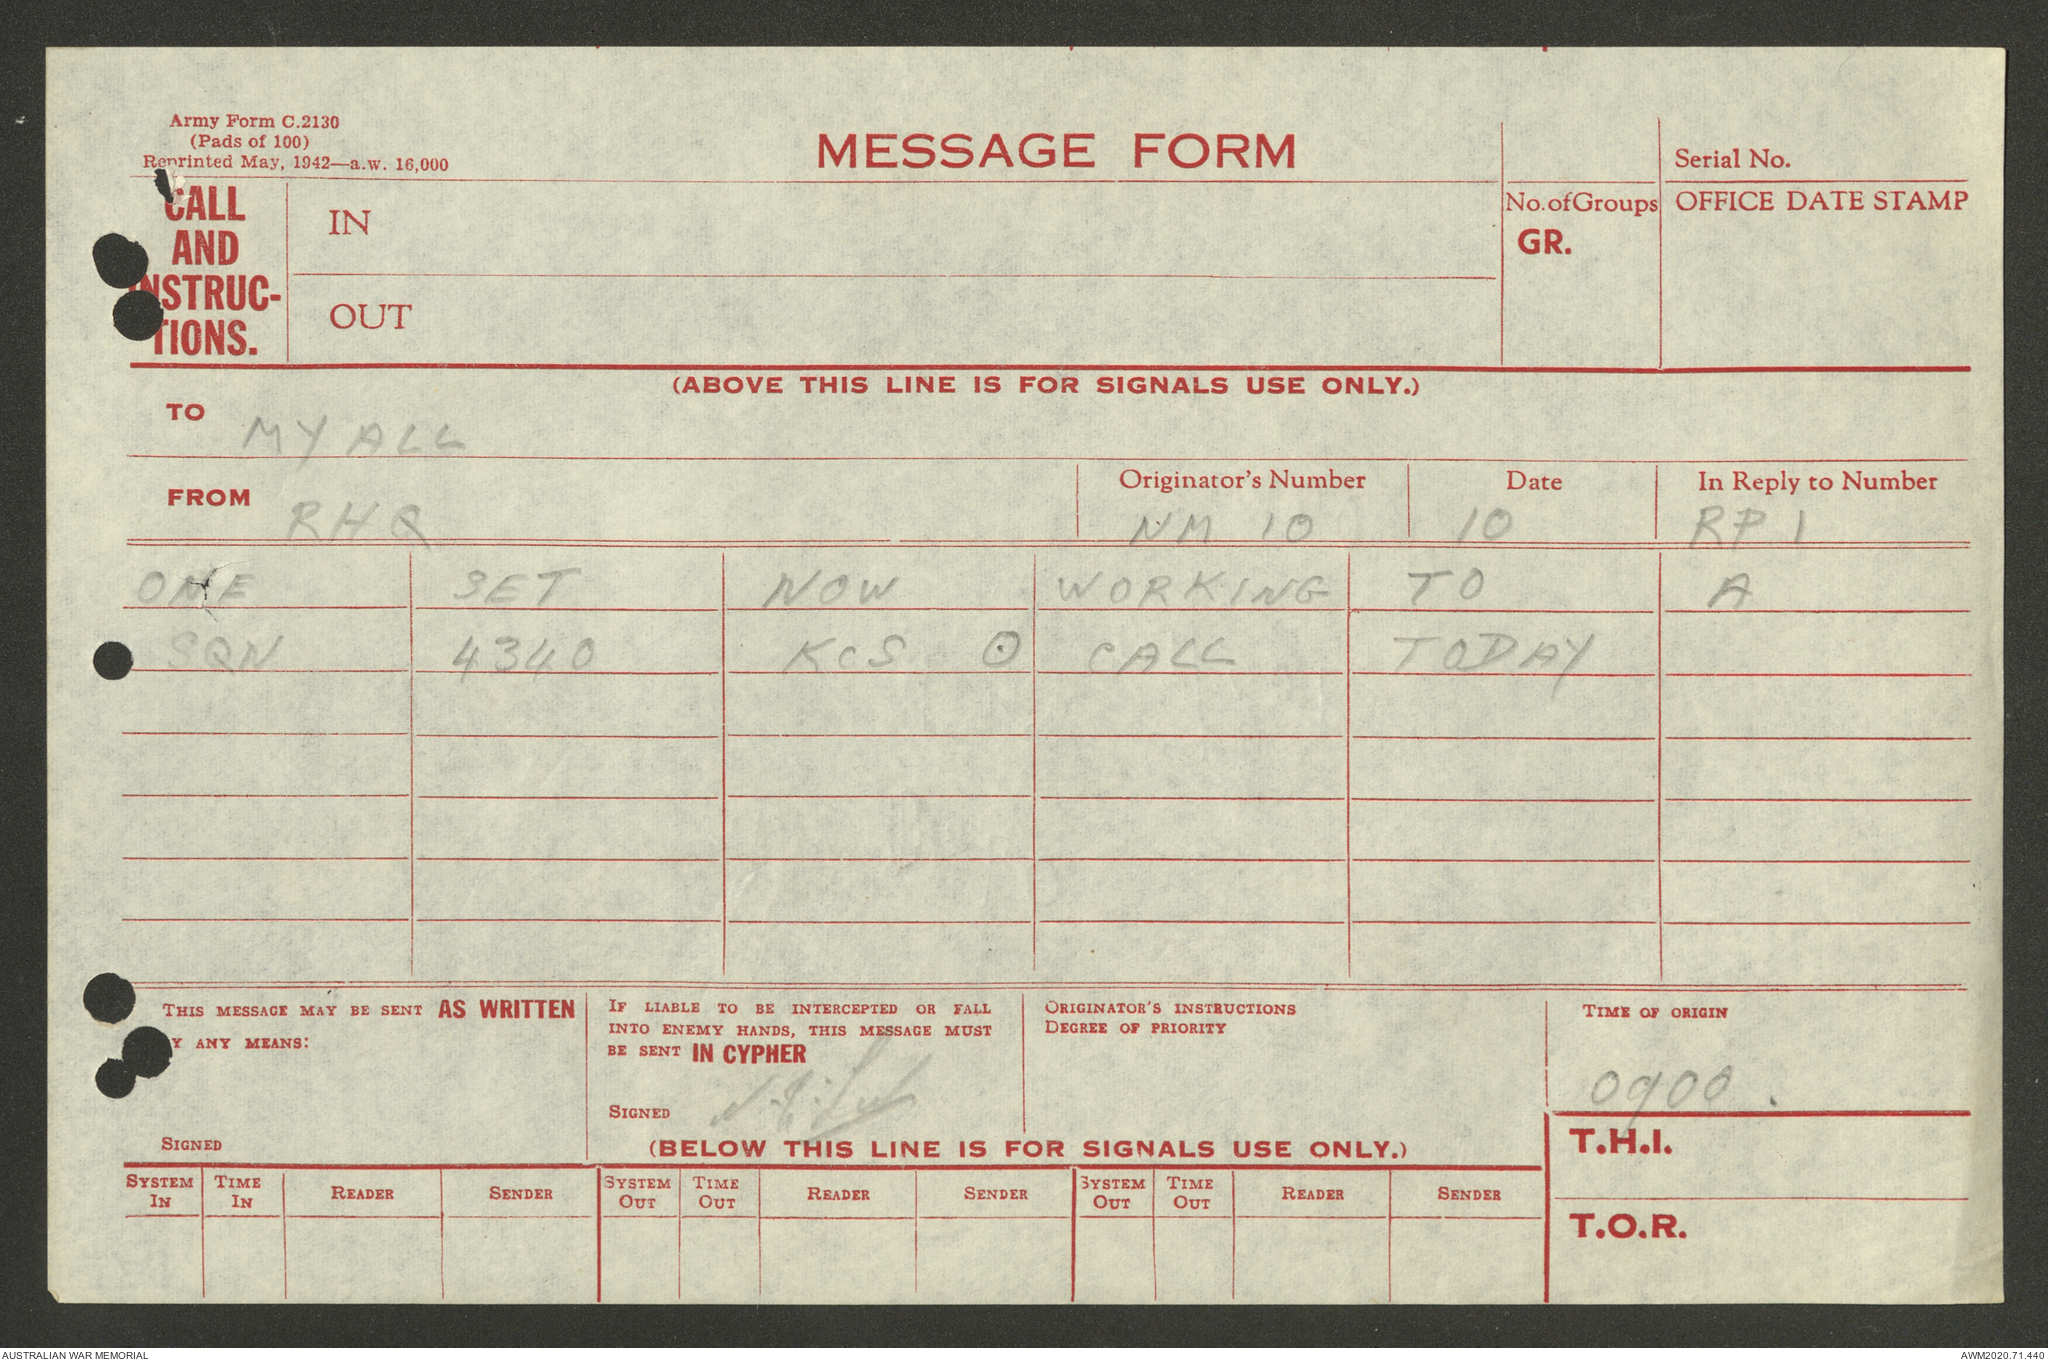 Army Form C.2130
(Pads of 100)
Reprinted May, 1942—a.w. 16,000
MESSAGE FORM
Serial No.
CALL AND INSTRUC-TIONS.
IN
No. of Groups
GR.
OFFICE DATE STAMP
OUT
(ABOVE THIS LINE IS FOR SIGNALS USE ONLY.)
TO MYALL
FROM RHQ
Originator's Number NM 10
Date 10
In Reply to Number RP 1
ONE SET NOW WORKING TO A
SQN 4340 KCS ⊙ CALL TODAY
THIS MESSAGE MAY BE SENT AS WRITTEN
Y ANY MEANS:
SIGNED
IF LIABLE TO BE INTERCEPTED OR FALL
INTO ENEMY HANDS, THIS MESSAGE MUST
BE SENT IN CYPHER
SIGNED
ORIGINATOR'S INSTRUCTIONS
DEGREE OF PRIORITY
TIME OF ORIGIN
0900.
(BELOW THIS LINE IS FOR SIGNALS USE ONLY.)
T.H.I.
SYSTEM IN TIME IN READER SENDER SYSTEM OUT TIME OUT READER SENDER SYSTEM OUT TIME OUT READER SENDER
T.O.R.
AUSTRALIAN WAR MEMORIAL
AWM2020.71.440